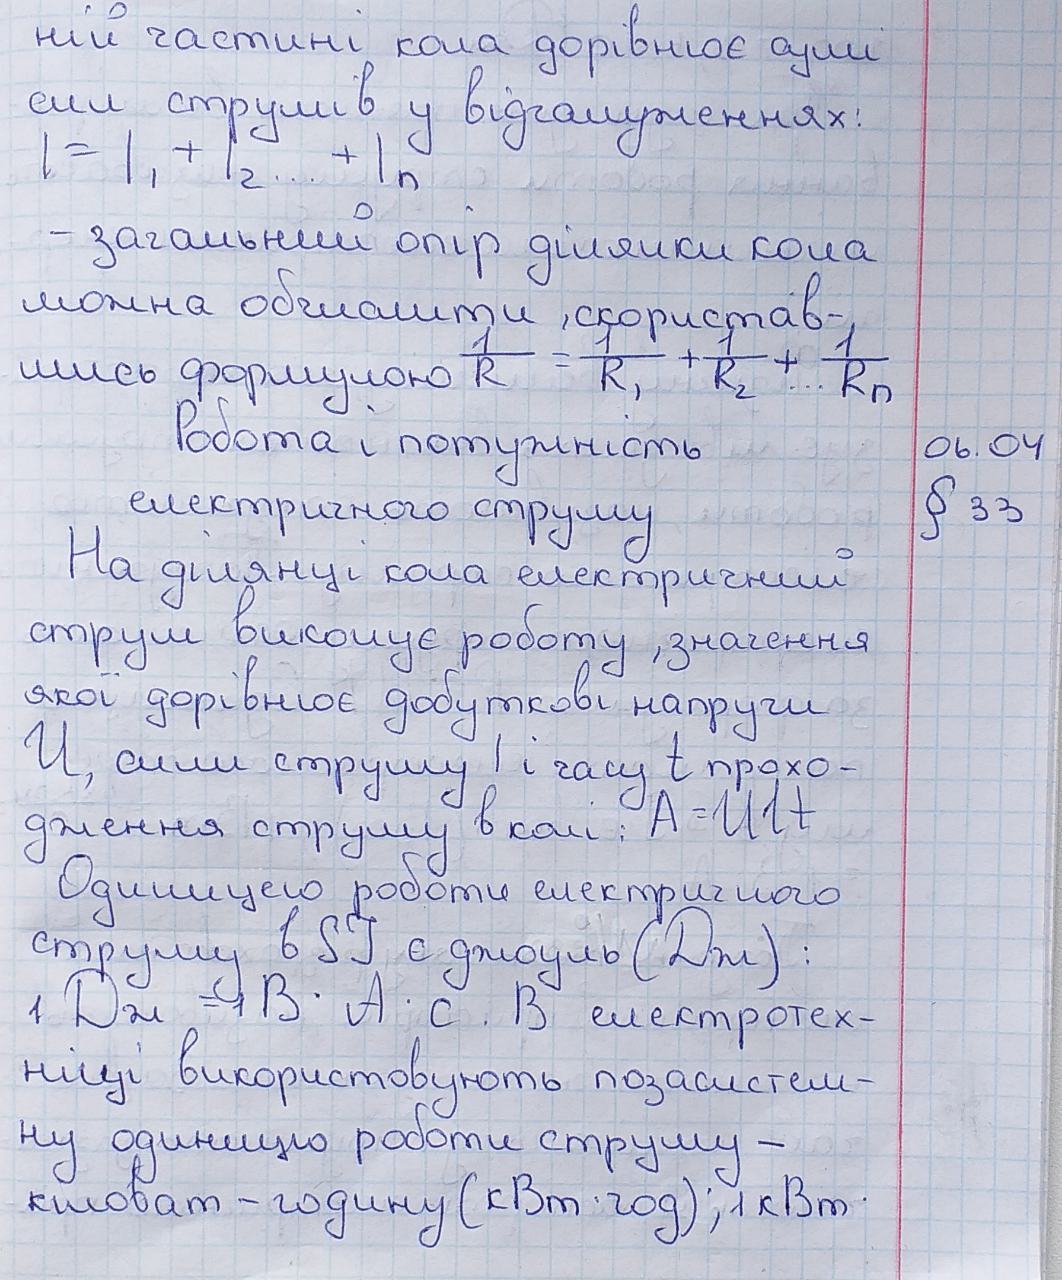 ній частині кола дорівнює сумі
сил струмів у відгалуженнях:
I = I₁ + I₂ ... + Iₙ
- загальний опір ділянки кола
можна обчислити, скористав-
шись формулою 1/R = 1/R₁ + 1/R₂ + ... 1/Rₙ
Робота і потужність 06.04
електричного струму § 33
На ділянці кола електричний
струм виконує роботу, значення
якої дорівнює добуткові напруги
U, сили струму I і часу t прохо-
дження струму в колі: A = UIt
Одиницею роботи електричного
струму в SI є джоуль (Дж):
1 Дж = 1 В · А · с. В електротех-
ніці використовують позасистем-
ну одиницю роботи струму –
кіловат - годину (кВт · год); 1 кВт ·